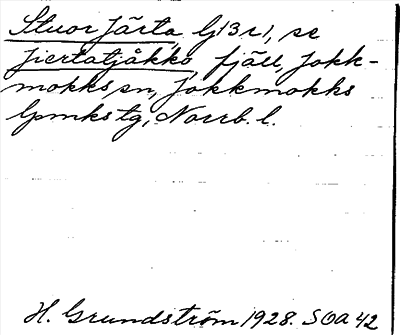 Stuor Järta Gj 3 r 1, se
Jiertatjåkkó fjäll, Jokk-
mokks sn, Jokkmokks
lpmks tg, Norrb. l.
H. Grundström 1928. SOA 42